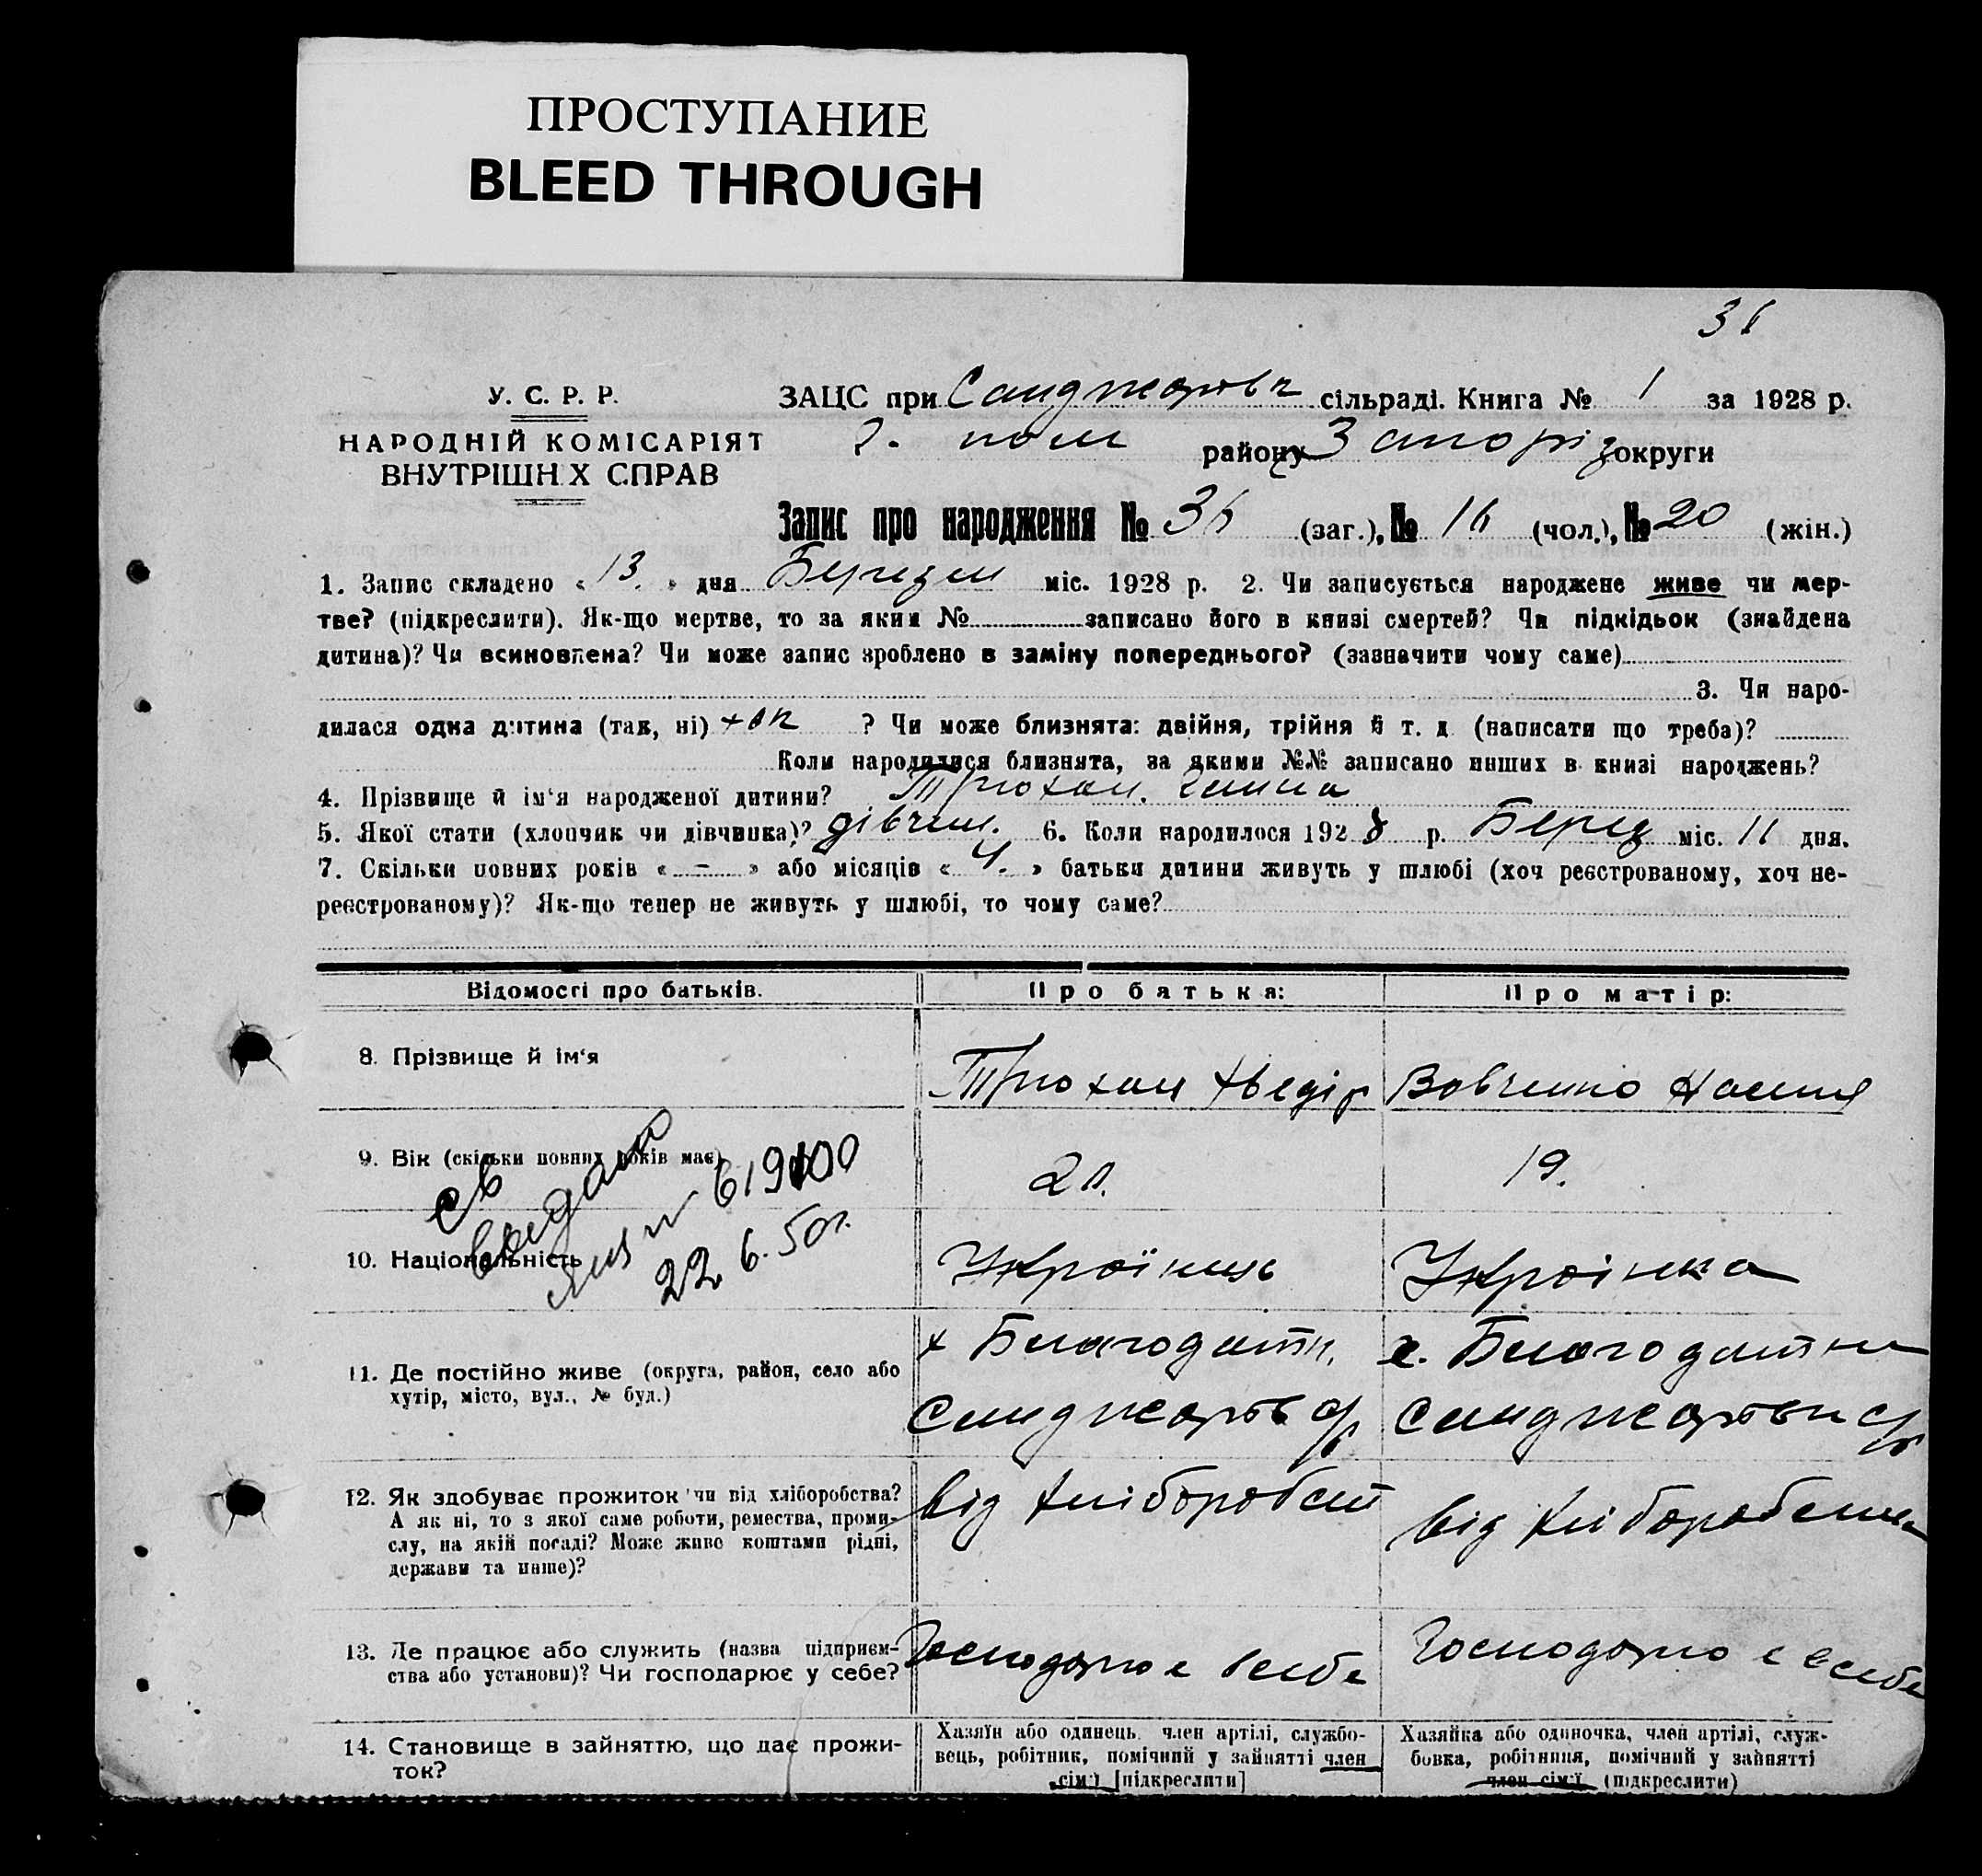 ПРОСТУПАНИЕ
BLEED THROUGH
36
У. С. Р. Р.
НАРОДНІЙ КОМІСАРІЯТ
ВНУТРІШН Х СПРАВ
ЗАЦС при Санджарівк сільраді. Книга № 1 за 1928 р.
г. пол району Запоріз округи
Запис про народження № 36 (заг.), № 16 (чол.), № 20 (жін.)
1. Запис складено « 13. » дня Березня міс. 1928 р. 2. Чи записується народжене живе чи мер-
тве? (підкреслити). Як-що мертве, то за яким № записано його в книзі смертей? Чи підкідьок (знайдена
дитина)? Чи всиновлена? Чи може запис зроблено в заміну попереднього? (зазначити чому саме)
3. Чи наро-
дилася одна дитина (так, ні) так ? Чи може близнята: двійня, трійня й т. д. (написати що треба)?
Коли народилися близнята, за якими №№ записано инших в книзі народжень?
4. Прізвище й ім'я народженої дитини? Трюхан. Ганна
5. Якої стати (хлопчик чи дівчинка)? дівчин. 6. Коли народилося 1928 р. Берез міс. 11 дня.
7. Скільки повних років « - » або місяців « 4. » батьки дитини живуть у шлюбі (хоч реєстрованому, хоч не-
реєстрованому)? Як-що тепер не живуть у шлюбі, то чому саме?
Відомості про батьків.
Про батька:
Про матір:
8. Прізвище й ім'я
Трюхан Хведір
Вовченко
9. Вік (скільки повних років має)
19.
св
видана
619100
22 6. 50 г.
10. Національність
Українць
Українка
11. Де постійно живе (округа, район, село або
хутір, місто, вул., № буд.)
х Благодатн.
Санджарів с/р
х. Благодатне
Санджарівки с/р
12. Як здобуває прожиток чи від хліборобства?
А як ні, то з якої саме роботи, ремества, проми-
слу, на якій посаді? Може живе коштами рідні,
держави та инше)?
від хліборобст
від хліборобства
13. Де працює або служить (назва підприєм-
ства або установи)? Чи господарює у себе?
Господарює в себе
Господарює в себе
14. Становище в зайняттю, що дає прожи-
ток?
Хазяїн або одинець, член артілі, службо-
вець, робітник, помічний у зайнятті член
сім'ї [підкреслити]
Хазяйка або одиночка, член артілі, служ-
бовка, робітниця, помічний у зайнятті
член сім'ї (підкреслити)